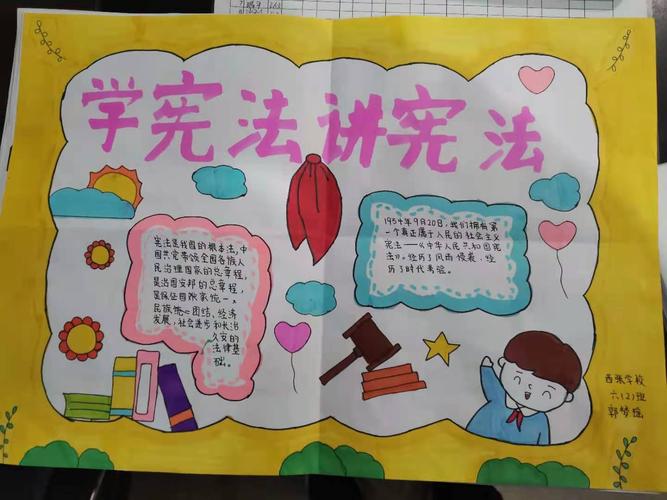 学宪法讲宪法
宪法是我国的根本法,中
国共党带领全国各族人
民治理国家的总章程,
是治国安邦的总章程,
是保证国家统一、
民族统一团结、经济
发展、社会进步和长治
久安的
法律基
础。
1954年9月20日,我们拥有第
一个真正属于人民的社会主义
宪法——《中华人民共和国宪
法》。经历了风雨侵袭,经
历了时代考验。
西张学校
六(2)班
郭梦瑶